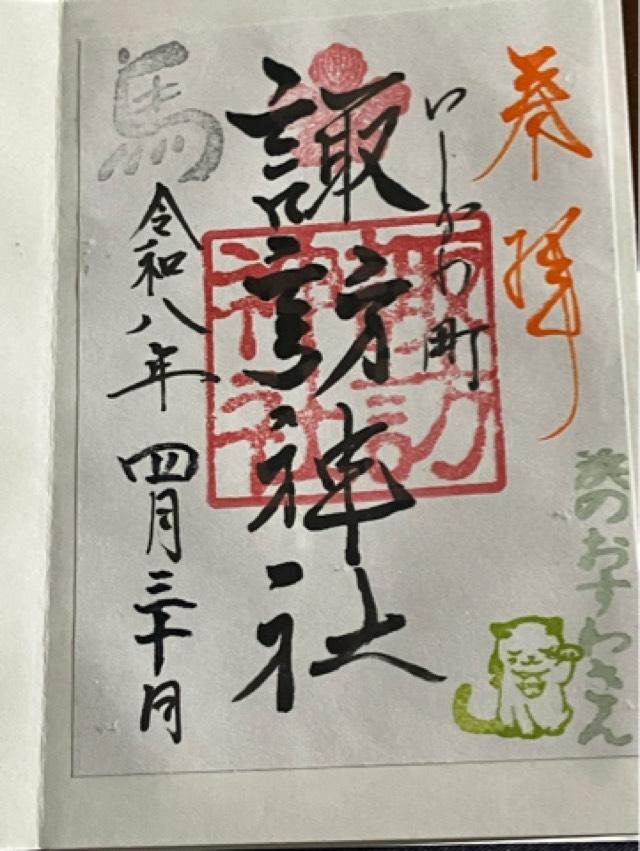 奉拝
浜のおすわさん
いしかわ町
諏訪神社
諏訪
神社
馬
令和八年 四月三十日